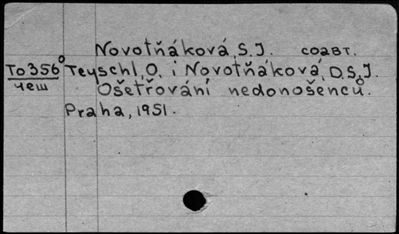 Novotňáková, S.J. соавт.
То356° Teyschl, O. i Novotňáková, D.S.J.
чеш Ošetřování nedonošenců.
Praha, 1951.